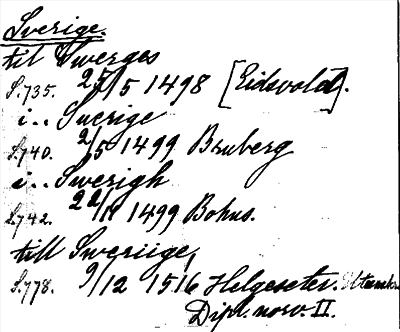 Sverige.
til Swerges
S.735. 25/5 1498 [Eidsvold].
i.. Swerige
S.740. 2/5 1499 Bruberg
i.. Swerigh
S.742. 22/11 1499 Bohus.
till Sweriige,
S.778. 9/12 1516 Helgeseter.
Dipl. norv. II.